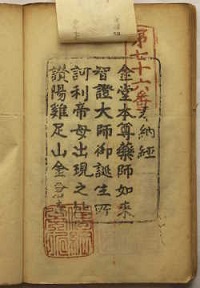 第七十六番
奉納經
金堂本尊藥師如來
智證大師御誕生所
訶利帝母出現之地
讃陽雞足山金倉寺